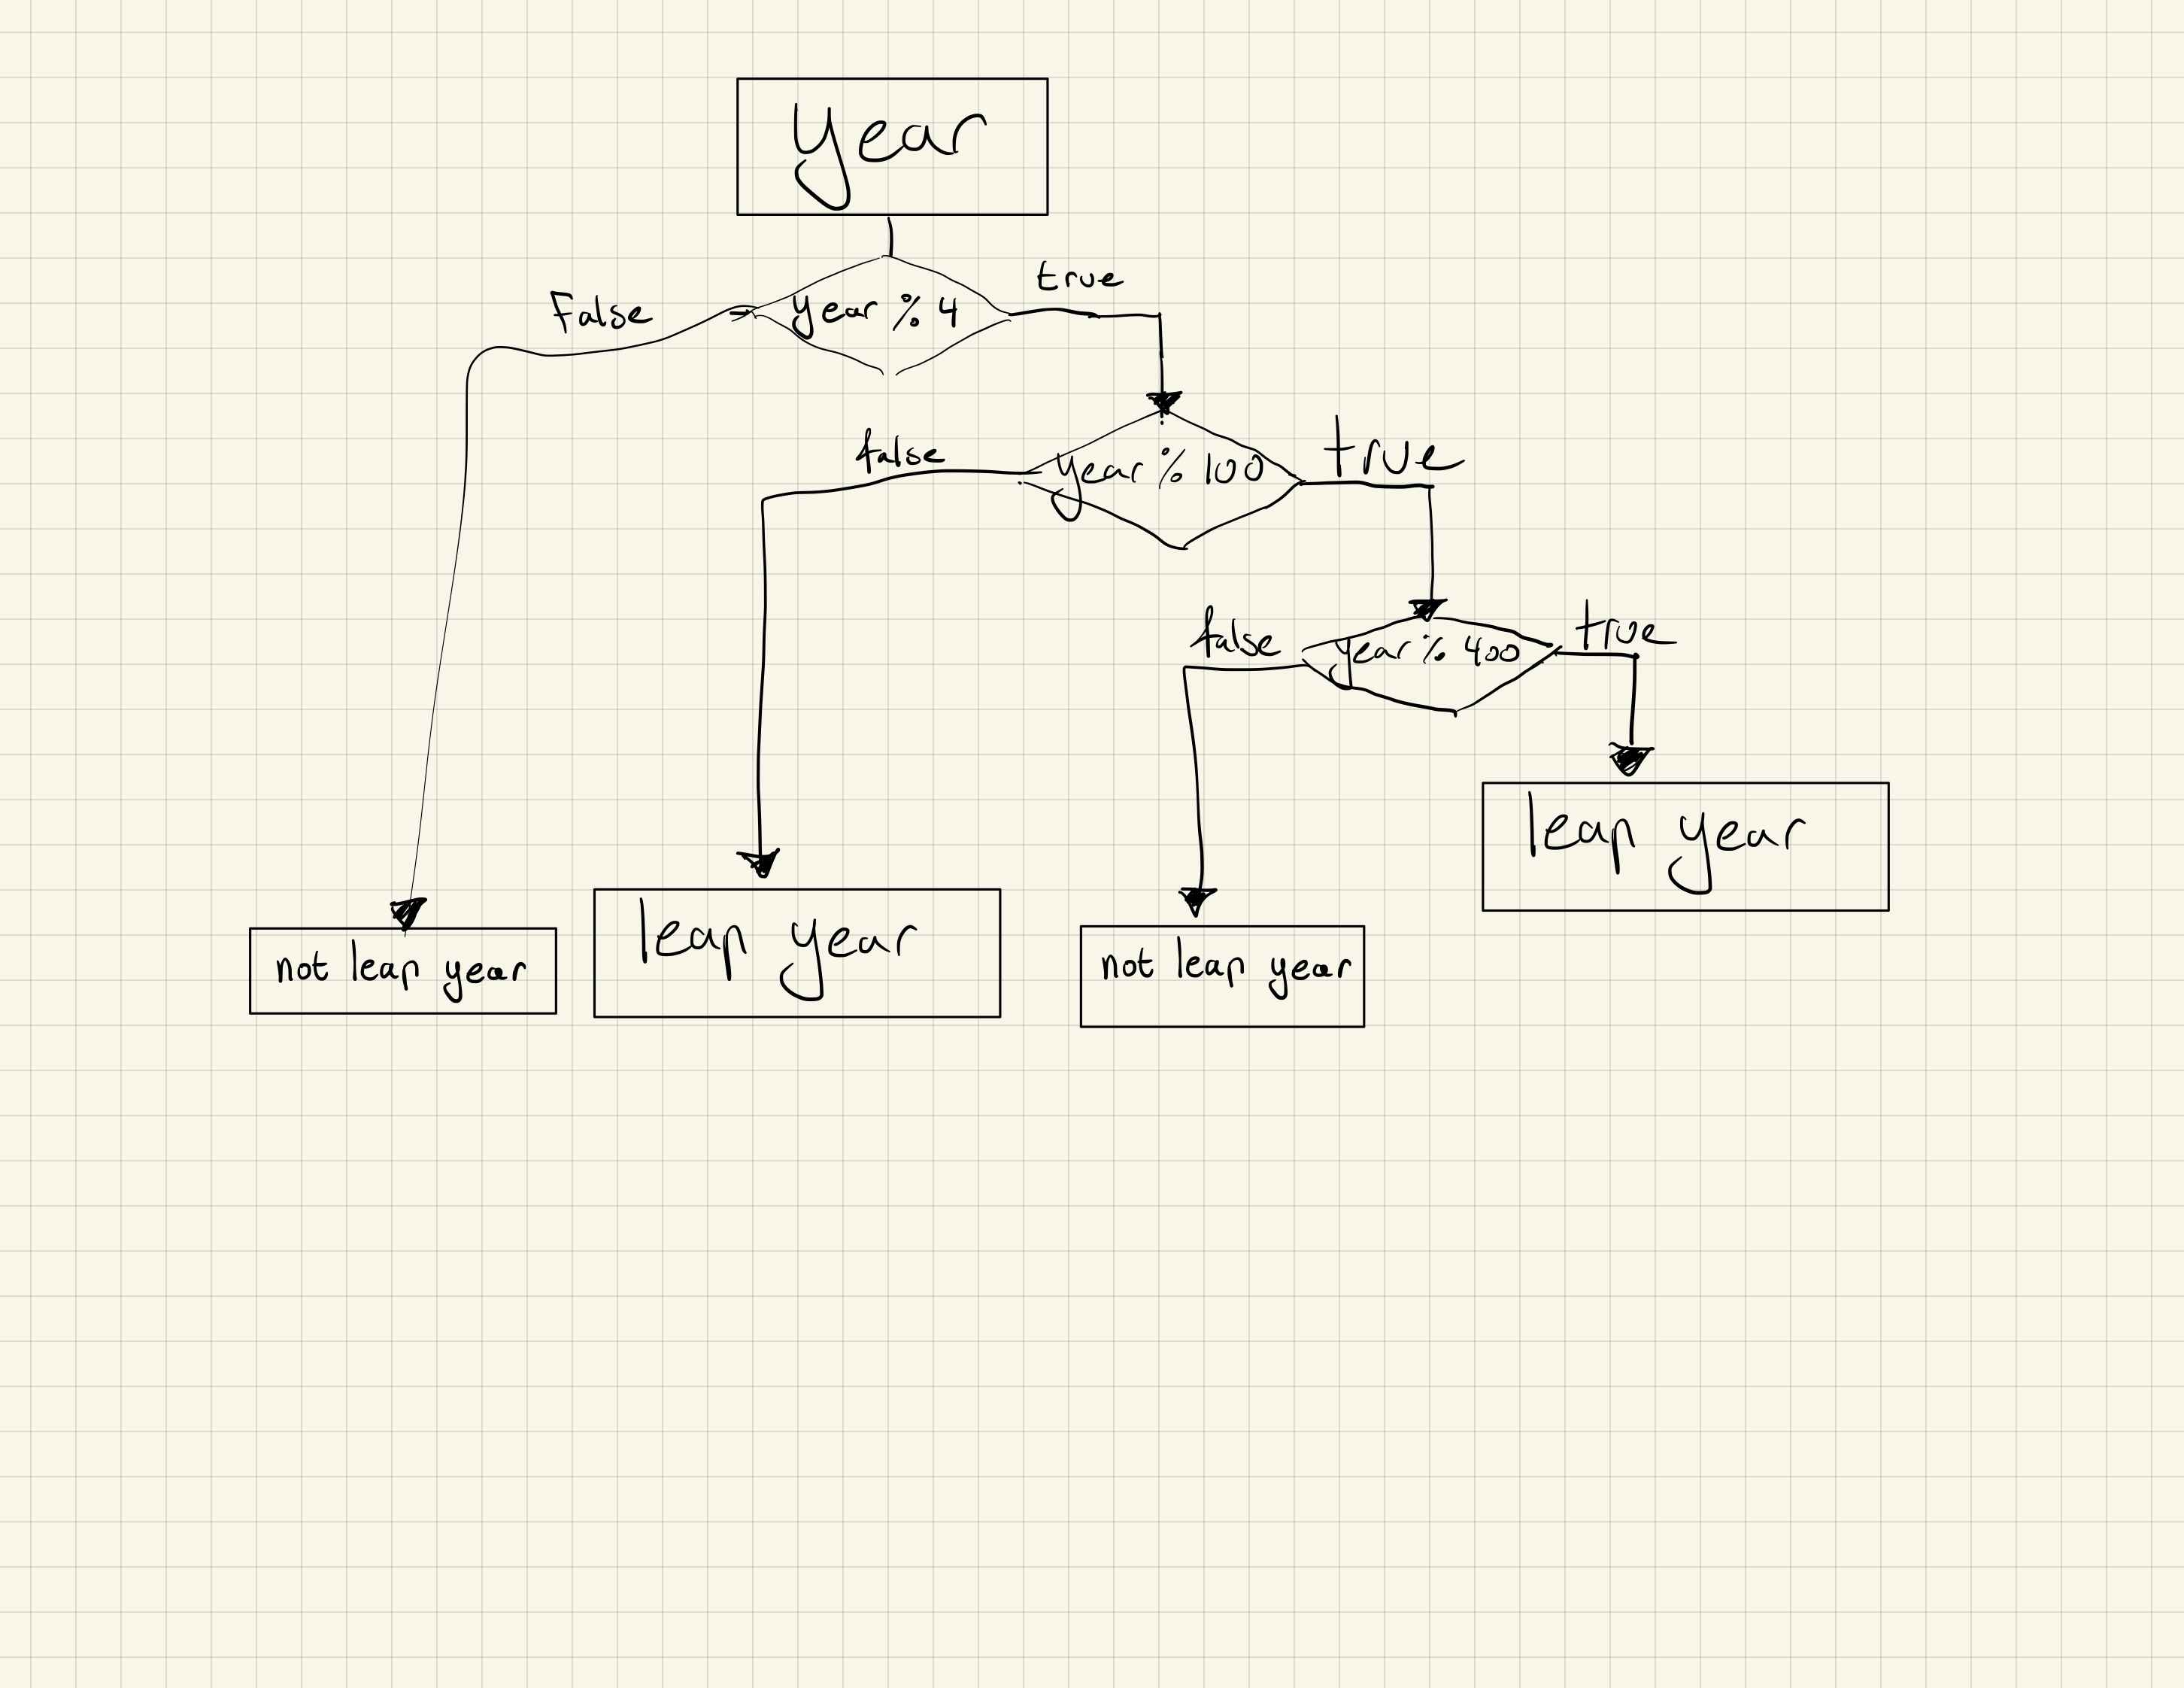 year
true
False
year % 4
false
year % 100
true
false
year % 400
true
leap year
leap year
not leap year
not leap year